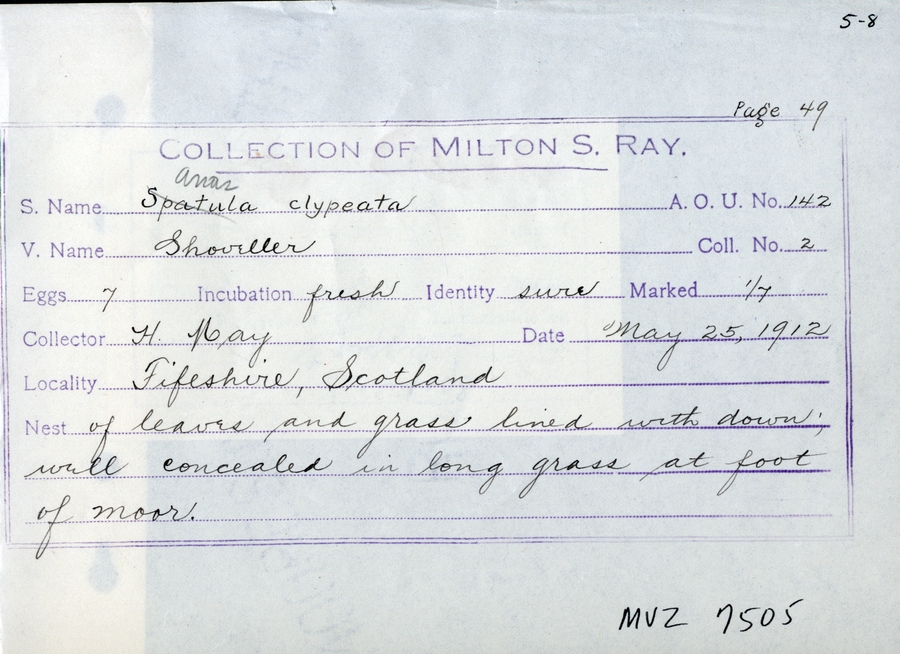 5-8
Page 49
COLLECTION OF MILTON S. RAY.
Anas
S. Name Spatula clypeata A. O. U. No. 142
V. Name Shoveller Coll. No. 2
Eggs 7 Incubation fresh Identity sure Marked 1/7
Collector H. May Date May 25, 1912
Locality Fifeshire, Scotland
Nest of leaves and grass lined with down;
well concealed in long grass at foot
of moor.
MVZ 7505